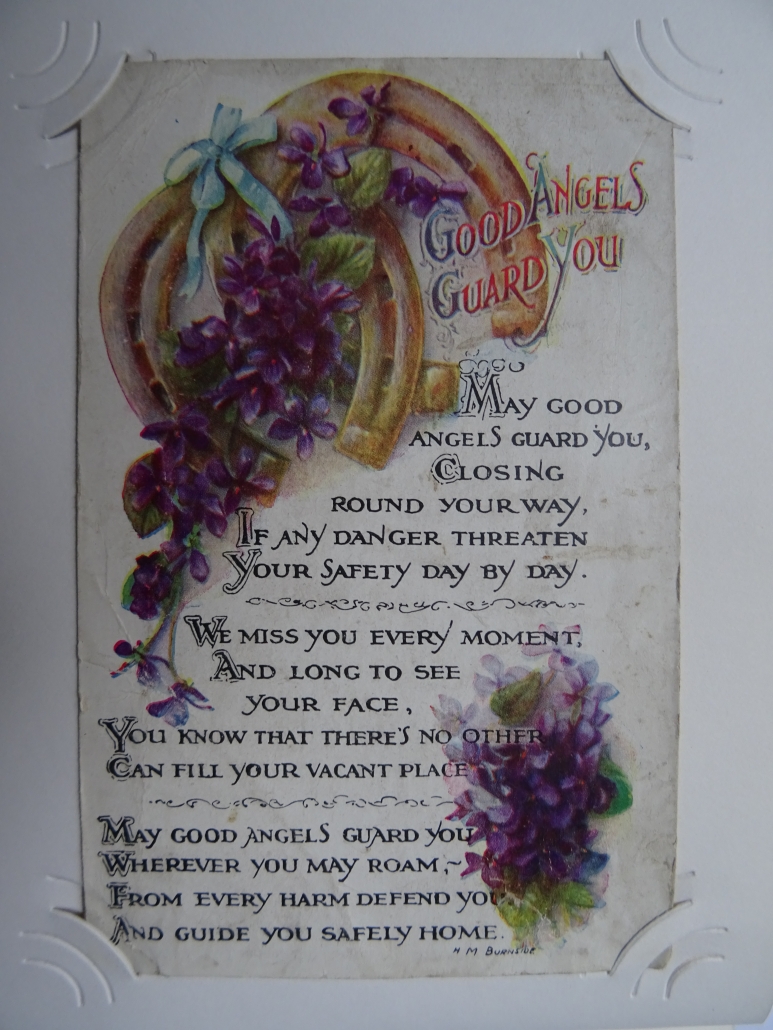 GOOD ANGELS
GUARD YOU
MAY GOOD
ANGELS GUARD YOU,
CLOSING
ROUND YOUR WAY,
IF ANY DANGER THREATEN
YOUR SAFETY DAY BY DAY.
WE MISS YOU EVERY MOMENT,
AND LONG TO SEE
YOUR FACE,
YOU KNOW THAT THERE'S NO OTHER
CAN FILL YOUR VACANT PLACE
MAY GOOD ANGELS GUARD YOU
WHEREVER YOU MAY ROAM,~
FROM EVERY HARM DEFEND YOU
AND GUIDE YOU SAFELY HOME.
H M BURNSIDE